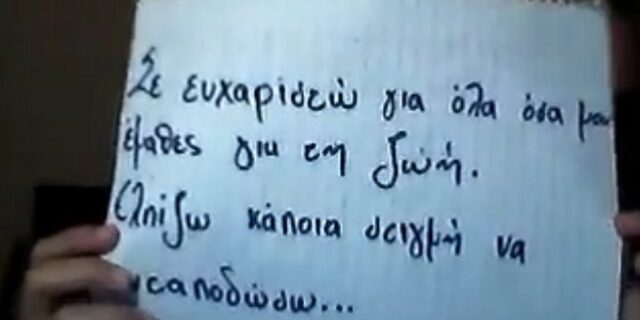 Σε ευχαριστώ για όλα όσα μου
έμαθες για τη ζωή.
Ελπίζω κάποια στιγμή να
ανταποδώσω...